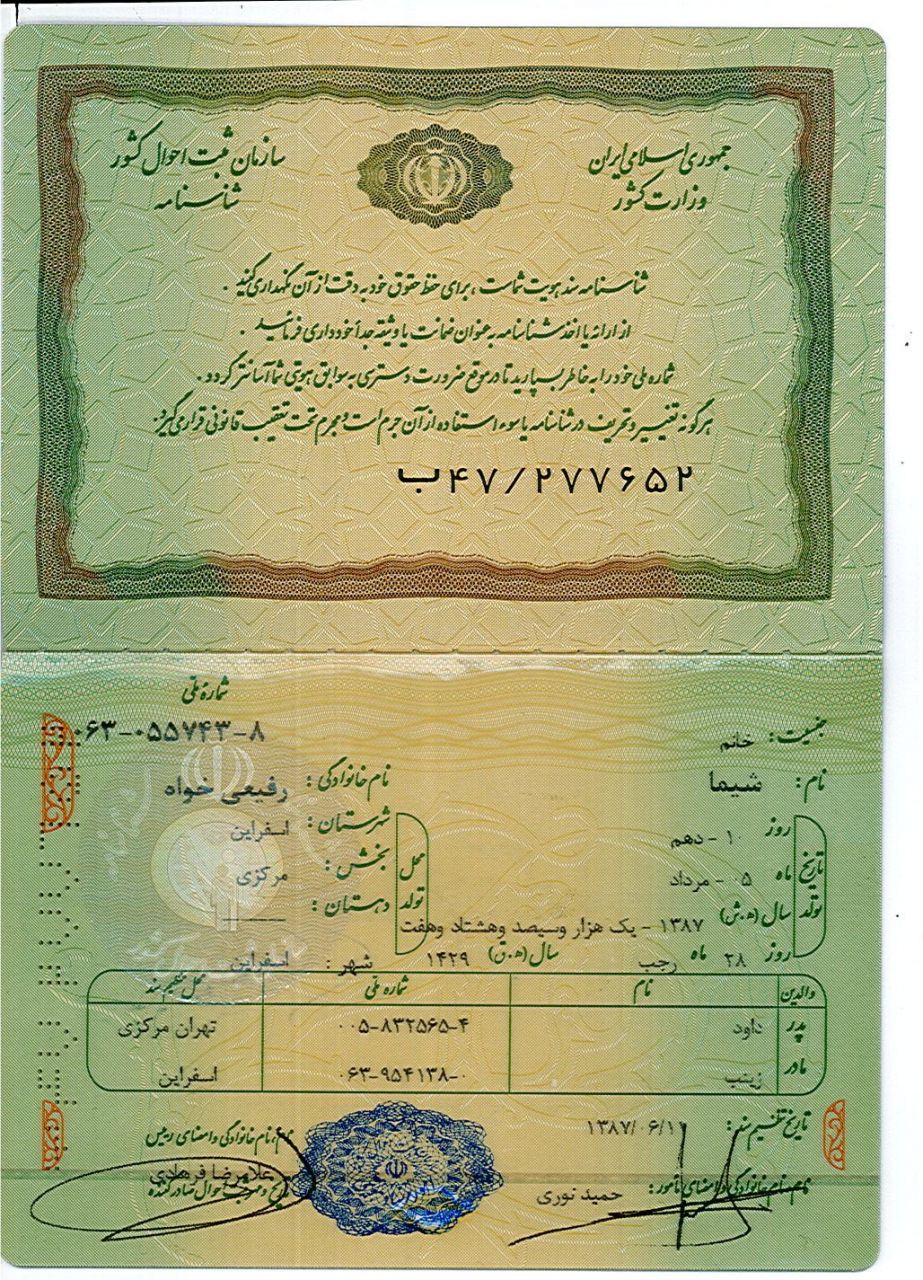 جمهوری اسلامی ایران
وزارت کشور
سازمان ثبت احوال کشور
شناسنامه
شناسنامه سند هویت شماست ، برای حفظ حقوق خود به دقت از آن نگهداری کنید .
از ارائه یا اخذ شناسنامه به عنوان ضمانت یا وثیقه جداً خودداری فرمائید .
شماره ملی خود را به خاطر بسپارید تا در موقع ضرورت دسترسی به سوابق هویتی شما آسانتر گردد .
هرگونه تغییر و تحریف در شناسنامه یا سوء استفاده از آن جرم است و مجرم تحت تعقیب قانونی قرار می گیرد.
ب۴۷/۲۷۷۶۵۲
شماره ملی
۰۶۳-۰۵۵۷۴۳-۸
جنسیت : خانم
نام : شیما
نام خانوادگی : رفیعی خواه
تاریخ تولد
روز ۱۰ - دهم
ماه ۰۵ - مرداد
سال (ه.ش) ۱۳۸۷ - یک هزار وسیصد وهشتاد وهفت
روز ۲۸ ماه رجب سال (ه.ق) ۱۴۲۹
محل تولد
شهرستان : اسفراین
بخش : مرکزی
دهستان : ————
شهر : اسفراین
والدین نام شماره ملی محل تنظیم سند
پدر داود ۰۰۵-۸۳۲۵۶۵-۴ تهران مرکزی
مادر زینب ۰۶۳-۹۵۴۱۳۸-۰ اسفراین
تاریخ تنظیم سند : ۱۳۸۷/۰۶/۱۱
نام، نام خانوادگی و امضای مأمور : حمید نوری
نام، نام خانوادگی و امضای رئیس
غلامرضا فرهادی
ثبت احوال صادرکننده